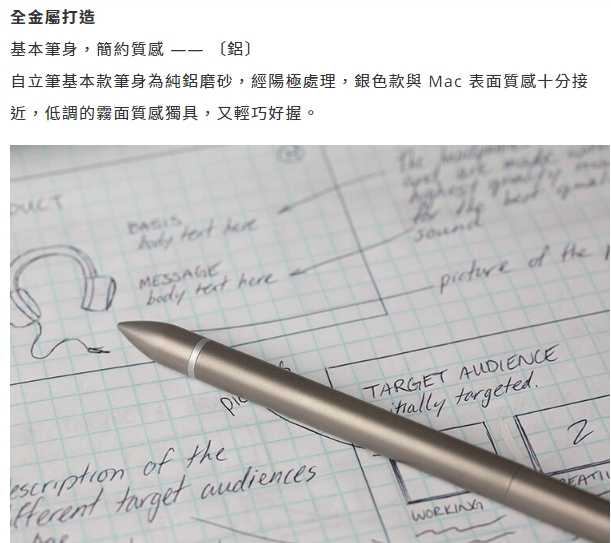 全金屬打造
基本筆身，簡約質感 —— 〔鋁〕
自立筆基本款筆身為純鋁磨砂，經陽極處理，銀色款與 Mac 表面質感十分接
近，低調的霧面質感獨具，又輕巧好握。
The
and are made
highest quality
for the best
sound
DUCT
BASIS
body text here
MESSAGE
body text here
picture of the
TARGET AUDIENCE
tially targeted.
pic
2
escription of the
fferent target audiences
WORKING